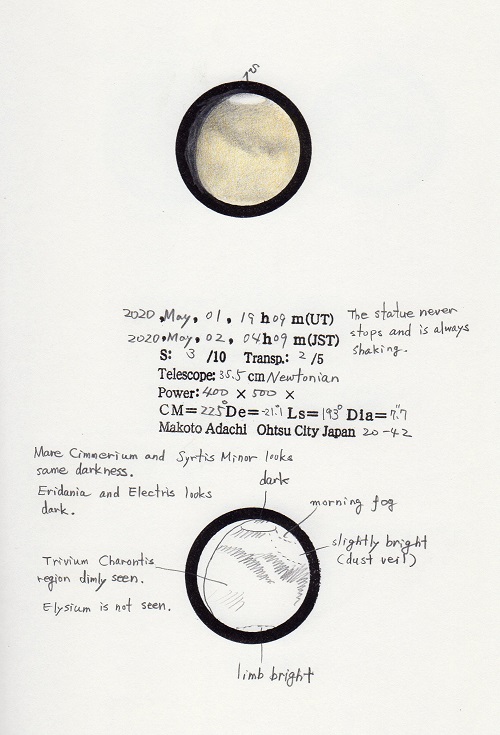 S
2020, May, 01, 19 h 09 m(UT)
2020, May, 02, 04 h 09 m(JST)
The statue never
stops and is always
shaking.
S: 3 /10 Transp.: 2 /5
Telescope: 35.5 cm Newtonian
Power: 400 × 500 ×
CM= 225° De= -21.°1 Ls= 193° Dia= 7."7
Makoto Adachi Ohtsu City Japan 20-42
Mare Cimmerium and Syrtis Minor looks
same darkness.
Eridania and Electris looks
dark.
dark
morning fog
slightly bright
(dust veil)
Trivium Charontis
region dimly seen.
Elysium is not seen.
limb bright